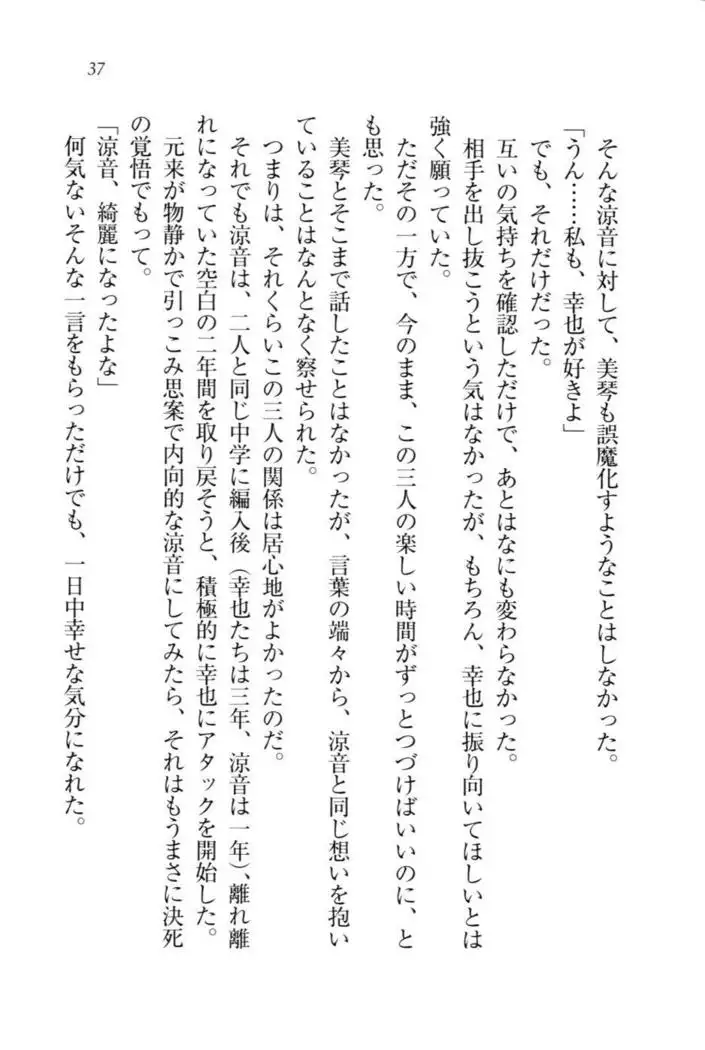 37
そんな涼音に対して、美琴も誤魔化すようなことはしなかった。
「うん……私も、幸也が好きよ」
でも、それだけだった。
互いの気持ちを確認しただけで、あとはなにも変わらなかった。
相手を出し抜こうという気はなかったが、もちろん、幸也に振り向いてほしいとは
強く願っていた。
ただその一方で、今のまま、この三人の楽しい時間がずっとつづけばいいのに、と
も思った。
美琴とそこまで話したことはなかったが、言葉の端々から、涼音と同じ想いを抱い
ていることはなんとなく察せられた。
つまりは、それくらいこの三人の関係は居心地がよかったのだ。
それでも涼音は、二人と同じ中学に編入後（幸也たちは三年、涼音は一年）、離れ離
れになっていた空白の二年間を取り戻そうと、積極的に幸也にアタックを開始した。
元来が物静かで引っこみ思案で内向的な涼音にしてみたら、それはもうまさに決死
の覚悟でもって。
「涼音、綺麗になったよな」
何気ないそんな一言をもらっただけでも、一日中幸せな気分になれた。